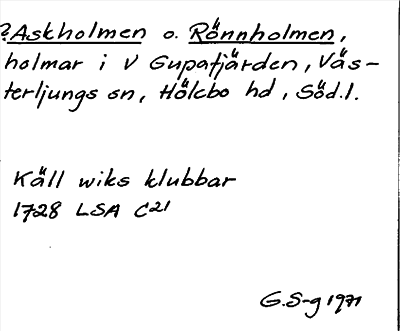 ?Askholmen o. Rönnholmen,
holmar i V Gupafjärden, Väs-
terljungs sn, Hölebo hd, Söd.l.
Käll wiks klubbar
1728 LSA C21
G.S-g 1971